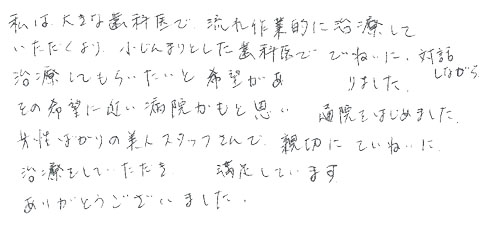 私は大きな歯科医で流れ作業的に治療して
いただくより、小じんまりとした歯科医でていねいに、対話しながら
治療してもらいたいと希望がありました。
その希望に近い病院かもと思い 通院をはじめました。
女性ばかりの美人スタッフさんで、親切にていねいに
治療をしていただき 満足しています
ありがとうございました。